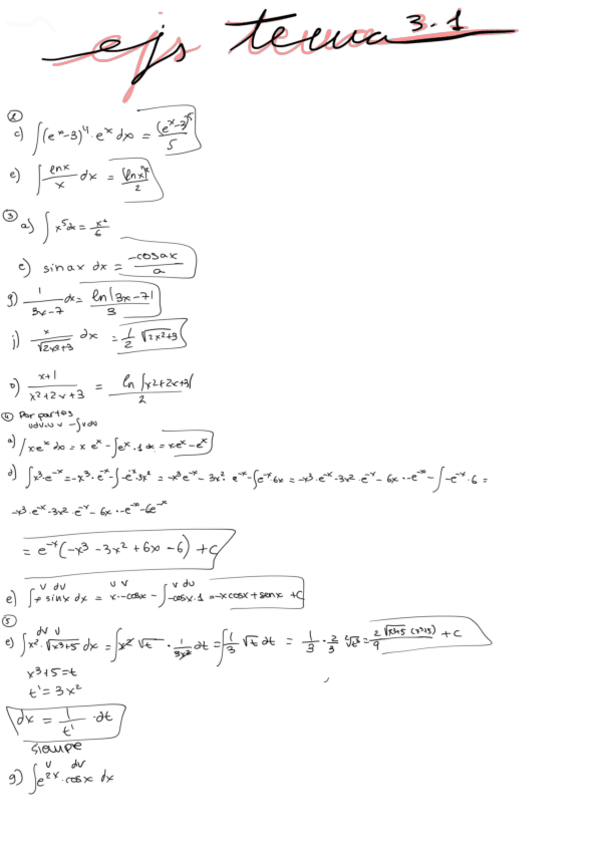 ejs tema 3.1
②
c) ∫(e^x-3)^4 · e^x dx = (e^x-3)^5/5
e) ∫ lnx/x dx = (lnx)^2/2
③ a) ∫ x^5 dx = x^6/6
e) sin ax dx = -cosax/a
g) 1/3x-7 dx = ln|3x-7|/3
j) x/√2x2+3 dx = 1/2 √2x2+3
o) x+1/x2+2x+3 = ln|x2+2x+3|/2
④ Por partes
udv=u v -∫vdu
a) ∫xe^x dx = x e^x - ∫e^x · 1 dx = xe^x - e^x
d) ∫x^3·e^-x = -x^3·e^-x - ∫-e^-x·3x^2 = -x^3e^-x - 3x^2·e^-x - ∫e^-x 6x = -x^3·e^-x - 3x^2·e^-x - 6x·-e^-x - ∫-e^-x·6 =
-x^3·e^-x - 3x^2·e^-x - 6x·-e^-x - 6e^-x
= e^-x(-x^3 - 3x^2 + 6x - 6) + C
e) ∫x sinx dx = x·-cosx - ∫-cosx·1 = -xcosx + senx + C
⑤
e) ∫x^2·√x^3+5 dx = ∫x^2 √t · 1/3x^2 dt = ∫1/3 √t dt = 1/3 · 2/3 √t^3 = 2√x^3+5 (x^3+5)/9 + C
x^3+5=t
t' = 3x^2
dx = 1/t' · dt
siempre
g) ∫e^2x · cosx dx